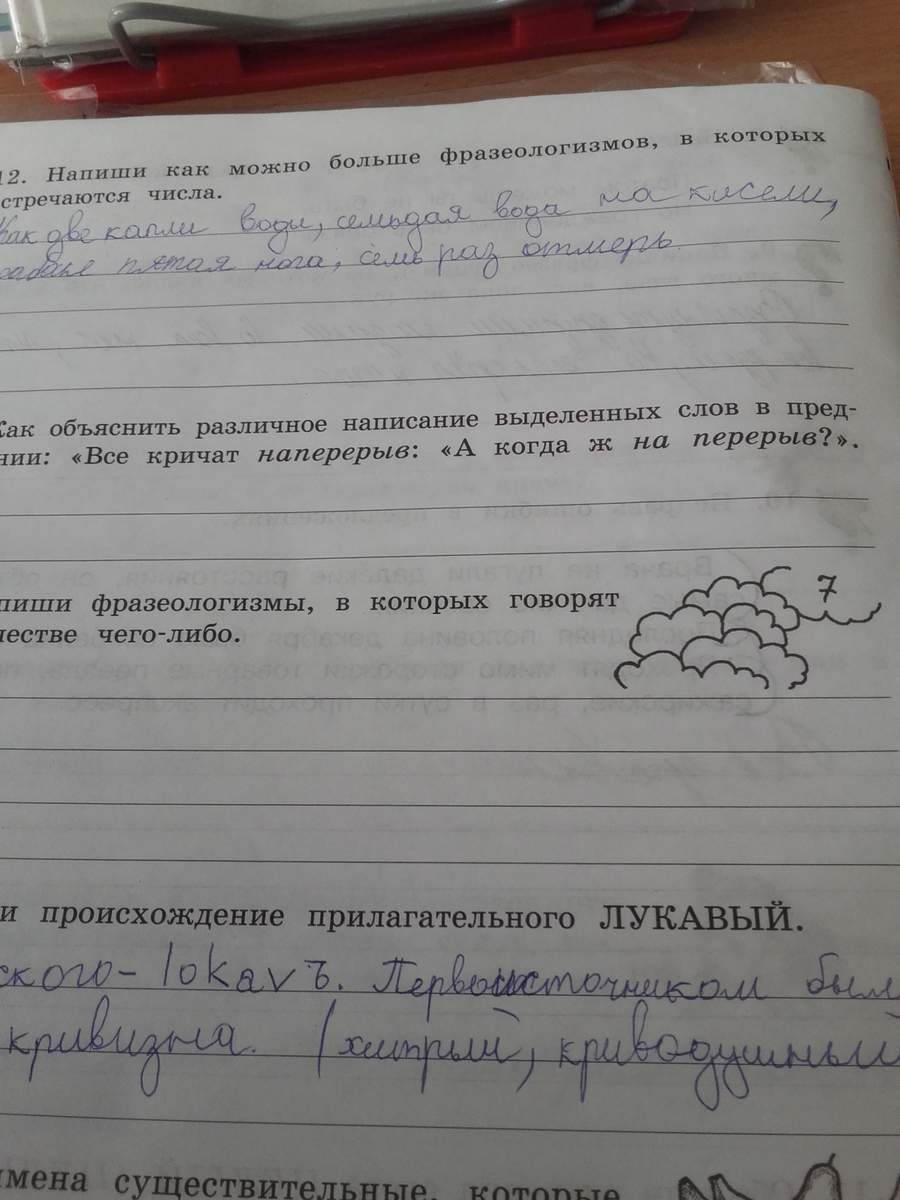 12. Напиши как можно больше фразеологизмов, в которых
стречаются числа.
Как две капли воды, семьдая вода на кисели,
собаке пятая нога, семь раз отмерь.
Как объяснить различное написание выделенных слов в пред-
нии: «Все кричат наперерыв: «А когда ж на перерыв?».
пиши фразеологизмы, в которых говорят
честве чего-либо.
7
и происхождение прилагательного ЛУКАВЫЙ.
ского - lokavъ. Первоисточником был
кривизна. (хитрый, криводушный
имена существительные, которые